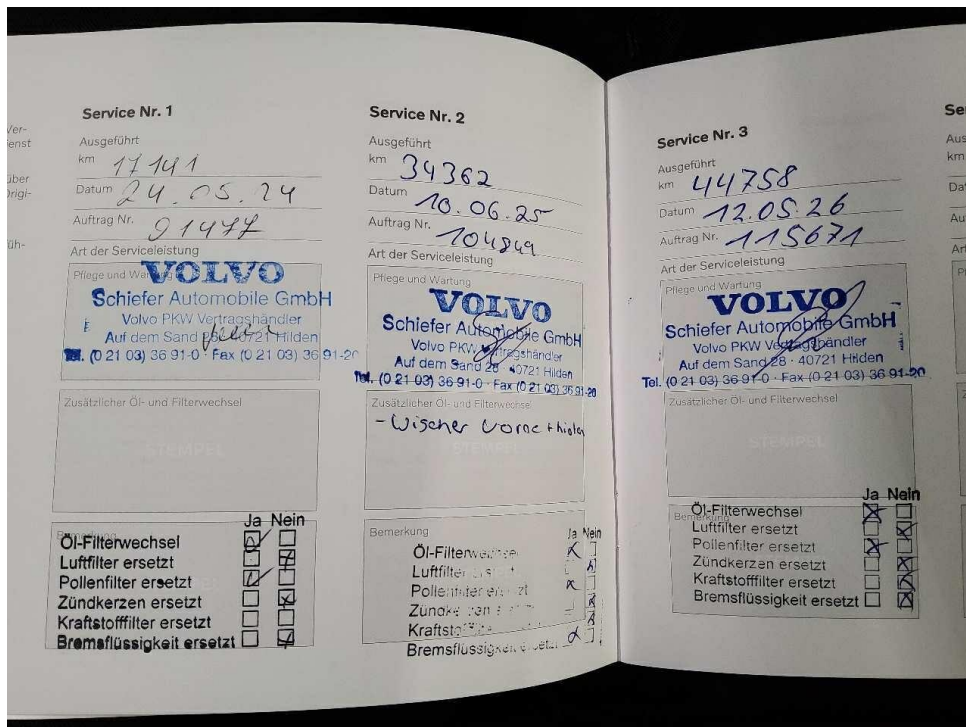 Ver-
enst
über
Origi-
üh-
Service Nr. 1
Ausgeführt
km 17141
Datum 24.05.24
Auftrag Nr. 91477
Art der Serviceleistung
Pflege und Wartung
VOLVO
Schiefer Automobile GmbH
Volvo PKW Vertragshändler
Auf dem Sand 28 · 40721 Hilden
Tel. (0 21 03) 36 91-0 · Fax (0 21 03) 36 91-20
Zusätzlicher Öl- und Filterwechsel
STEMPEL
Bemerkung
Ja Nein
Öl-Filterwechsel
Luftfilter ersetzt
Pollenfilter ersetzt
Zündkerzen ersetzt
Kraftstofffilter ersetzt
Bremsflüssigkeit ersetzt
Service Nr. 2
Ausgeführt
km 34362
Datum 10.06.25
Auftrag Nr. 104849
Art der Serviceleistung
Pflege und Wartung
VOLVO
Schiefer Automobile GmbH
Volvo PKW Vertragshändler
Auf dem Sand 28 · 40721 Hilden
Tel. (0 21 03) 36 91-0 · Fax (0 21 03) 36 91-20
Zusätzlicher Öl- und Filterwechsel
- Wischer vorne + hinten
STEMPEL
Bemerkung
Ja Nein
Öl-Filterwechsel
Luftfilter ersetzt
Pollenfilter ersetzt
Zündkerzen ersetzt
Kraftstofffilter
Bremsflüssigkeit ersetzt
Service Nr. 3
Ausgeführt
km 44758
Datum 12.05.26
Auftrag Nr. 115671
Art der Serviceleistung
Pflege und Wartung
VOLVO
Schiefer Automobile GmbH
Volvo PKW Vertragshändler
Auf dem Sand 28 · 40721 Hilden
Tel. (0 21 03) 36 91-0 · Fax (0 21 03) 36 91-20
Zusätzlicher Öl- und Filterwechsel
STEMPEL
Bemerkung
Ja Nein
Öl-Filterwechsel
Luftfilter ersetzt
Pollenfilter ersetzt
Zündkerzen ersetzt
Kraftstofffilter ersetzt
Bremsflüssigkeit ersetzt
Se
Aus
km
Da
Au
Art